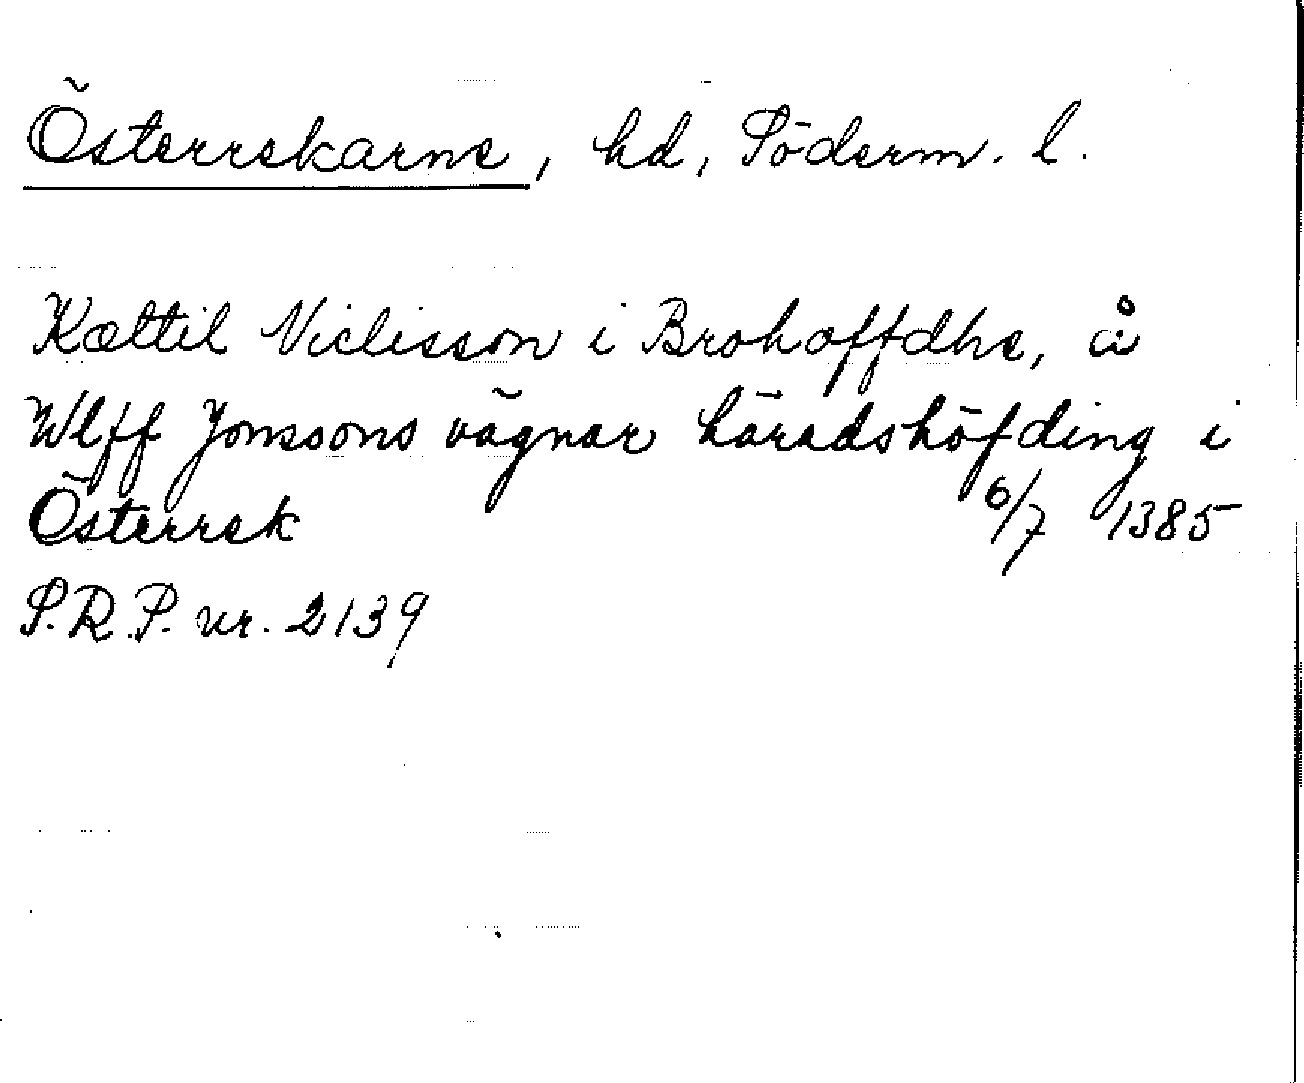 Österrekarne, hd, Söderm. l.
Kættil Niclisson i Brohoffdhe, å
Wlff Jonssons vägnar häradshöfding i
Österrek 6/7 1385
S.R.P. nr. 2139